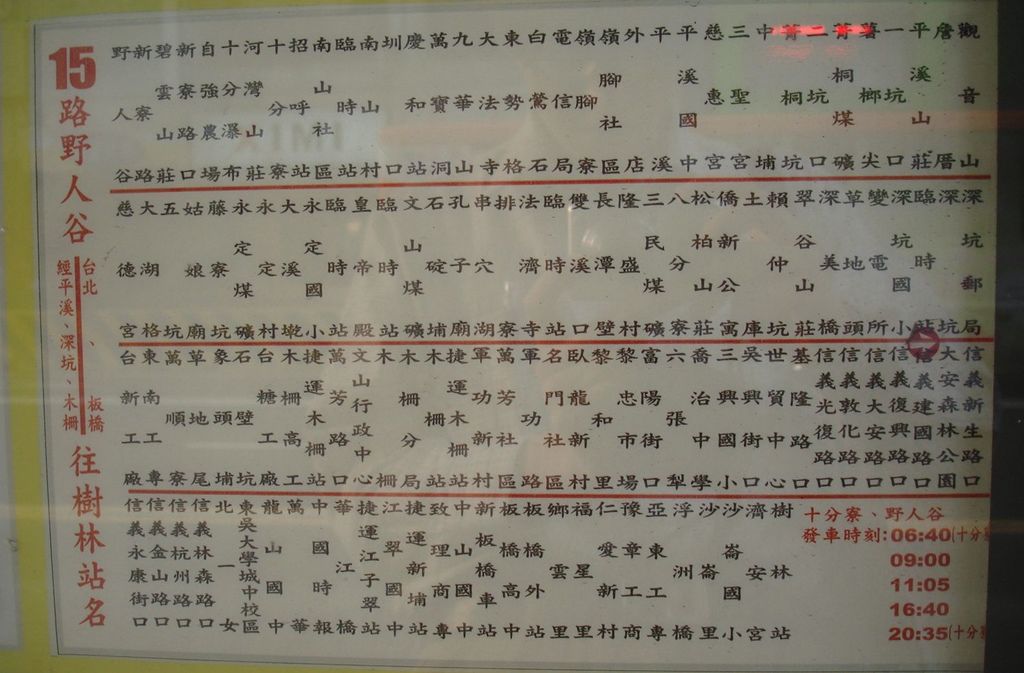 15路野人谷往樹林站名
台北、板橋
經平溪、深坑、木柵
野人谷
新寮路
碧雲山莊
新寮路口
自強農場
十分瀑布
河灣山莊
十分寮
招呼站
南山社區
臨時站
南山村
圳口
慶和站
萬寶洞
九華山
大法寺
東勢格
白鶯石
電信局
嶺腳寮
嶺腳社區
外店
平溪
平溪國中
慈惠宮
三聖宮
中埔
菁桐坑
二坑口
菁桐煤礦
薯榔尖
一坑口
平溪山莊
詹厝
觀音山
慈德宮
大湖格
五坑
姑娘廟
藤寮坑
永定煤礦
永定村
大溪墘
永定國小
臨時站
皇帝殿
臨時站
文山煤礦
石碇埔
孔子廟
串穴湖
排寮
法濟寺
臨時站
雙溪口
長潭壁
隆盛村
三民煤礦
八分寮
松柏山莊
僑新公寓
土庫
賴仲坑
翠谷山莊
深美橋
草地頭
變電所
深坑國小
臨時站
深坑
深坑郵局
台新工廠
東南工專
萬順寮
草地尾
象頭埔
石壁坑
台糖工廠
木柵高工
捷運木柵站
萬芳路口
文山行政中心
木柵
木柵分局
木柵站
捷運木柵站
軍功新村
萬芳社區
軍功路
名門社區
臥龍新村
黎和里
黎忠市場
富陽街口
六張犁
喬治中學
三興國小
吳興街口
世貿中心
基隆路口
信義光復路口
信義敦化路口
信義大安路口
信義復興路口
信義建國路口
大安森林公園
信義新生路口
信義永康街口
信義金山路口
信義杭州路口
信義林森路口
北一女
東吳大學城中校區
龍山國中
萬華
中國時報
華江橋
捷運江子翠站
江翠國中
捷運新埔站
致理商專
中山國中
新板橋車站
板橋高中
板橋外站
鄉雲里
福星里
仁愛新村
豫章工商
亞東工專
浮洲橋
沙崙里
沙崙國小
濟安宮
樹林站
十分寮、野人谷
發車時刻:06:40(十分
09:00
11:05
16:40
20:35(十分